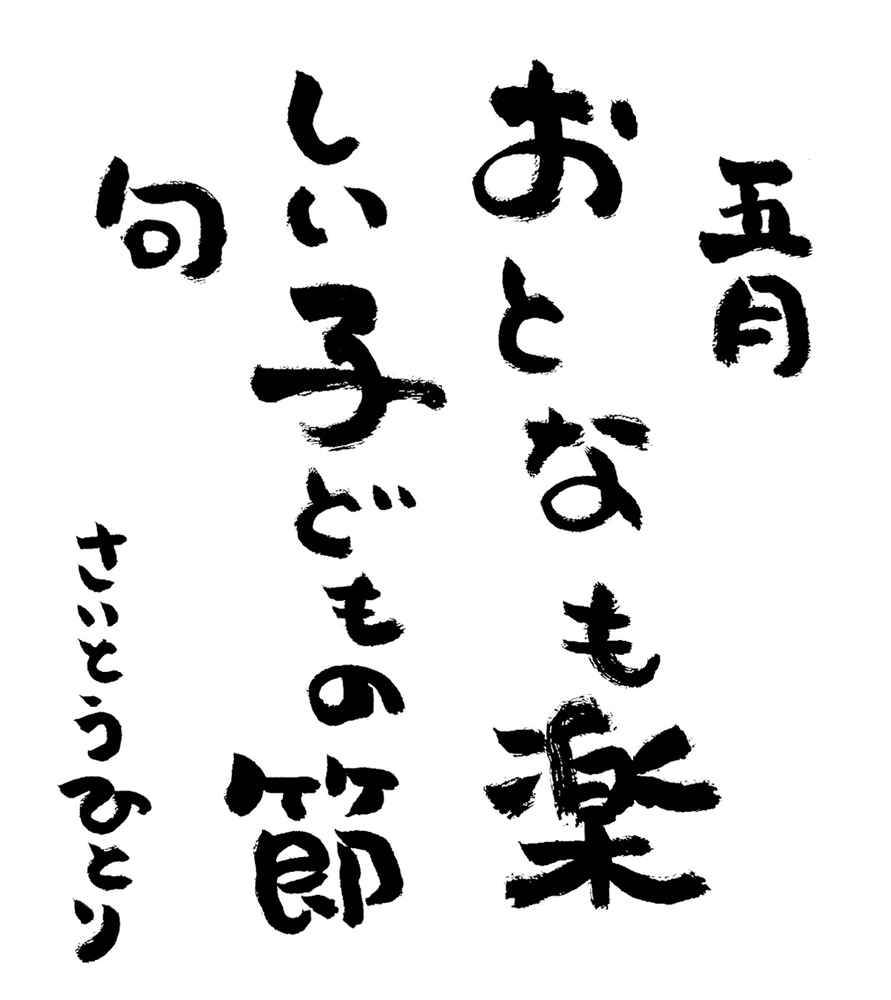 五月
おとなも楽
しい子どもの節
句
さいとうひとり